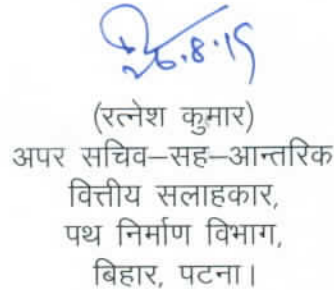 26.8.15
(रत्नेश कुमार)
अपर सचिव–सह–आन्तरिक
वित्तीय सलाहकार,
पथ निर्माण विभाग,
बिहार, पटना।